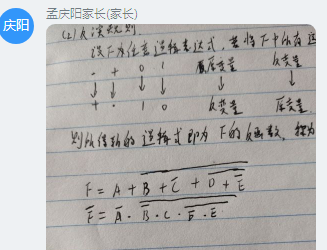 庆阳
孟庆阳家长(家长)
(2) 反演规则
设F为任意逻辑表达式,若将F中所有运
· + 0 1 原变量 反变量
↓ ↓ ↓ ↓ ↓ ↓
+ · 1 0 反变量 原变量
则所得新的逻辑式即为F的反函数,称为
F = A + \overline{B + \overline{C} + \overline{D + \overline{E}}}
\overline{F} = \overline{A} · \overline{\overline{B} · C · \overline{\overline{D} · E}}